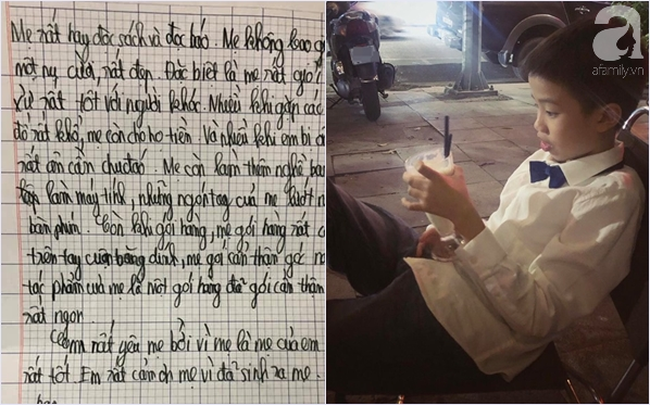 Mẹ rất hay đọc sách và đọc báo. Mẹ không bao g
một nụ cười, rất đẹp. Đặc biệt là mẹ rất giỏi
xử rất tốt với người khác. Nhiều khi gặp các
đó rất khổ, mẹ còn cho họ tiền. Và nhiều khi em bị
rất ân cần chu đáo. Mẹ còn làm thêm nghề ba
làm máy tính, những ngón tay của mẹ lướt n
bàn phím. Còn khi gói hàng, mẹ gói hàng rất c
trên tay cuộn băng dính, mẹ gói cẩn thận góc
tác phẩm của mẹ là một gói hàng đã gói cẩn thận
rất ngon.
Em rất yêu mẹ bởi vì mẹ là mẹ của em
rất tốt. Em rất cảm ơn mẹ vì đã sinh ra mẹ.
a
afamily.vn